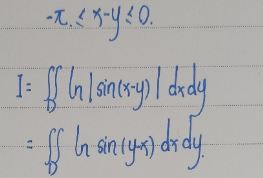 -π ≤ x-y ≤ 0.
I = ∬ ln |sin(x-y)| dxdy
= ∬ ln sin(y-x) dxdy.
D